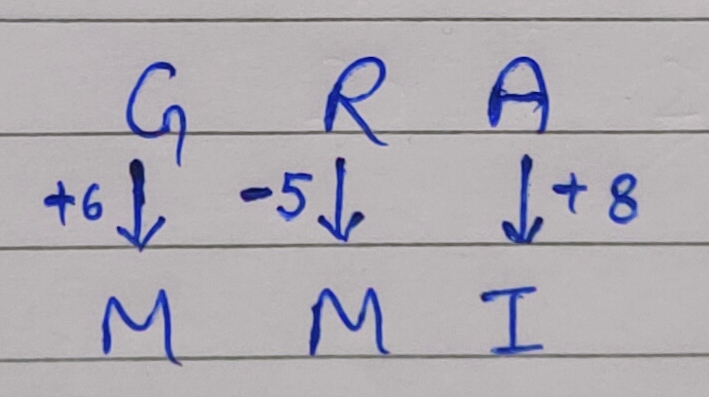 G R A
+6 ↓ -5 ↓ ↓ + 8
M M I